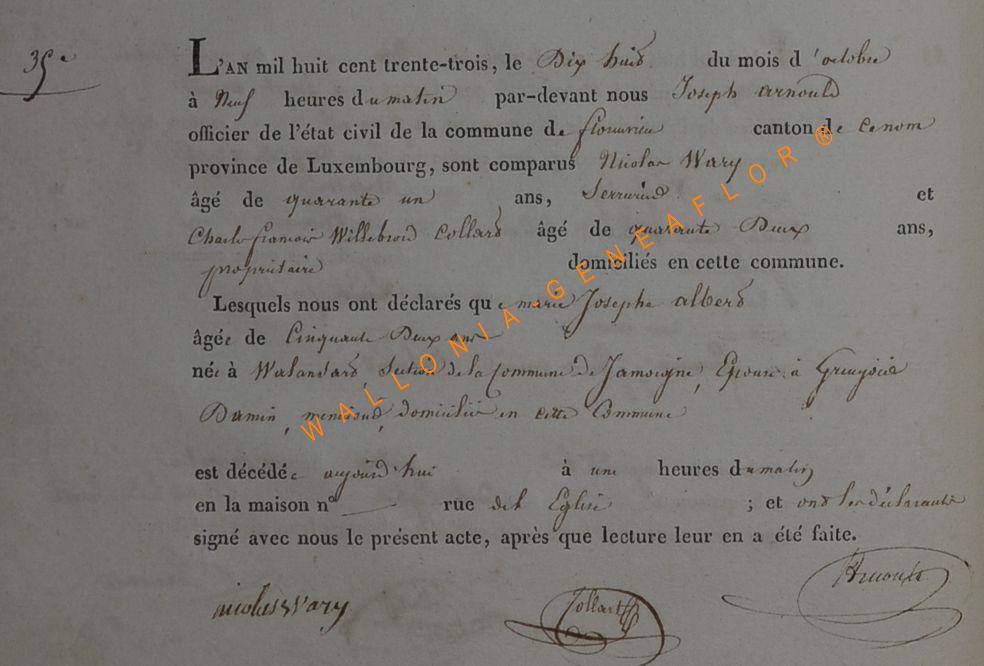 35e
L'AN mil huit cent trente-trois, le Dix huit du mois d'octobre
à Neuf heures du matin par-devant nous Joseph arnould
officier de l'état civil de la commune de florenville canton de
province de Luxembourg, sont comparus Nicolas Wary
âgé de quarante un ans, Serrurier et
Charle francois Willebrord Collard âgé de quarante Deux ans,
propriétaire domiciliés en cette commune.
Lesquels nous ont déclarés que marie Josephe albert
âgée de Cinquante Deux ans
née à Section de la Commune de Jamoigne, Epouse à
domiciliée en cette Commune
est décédée aujourd'hui à une heures du matin
en la maison n° rue de l'Eglise ; et ont les déclarants
signé avec nous le présent acte, après que lecture leur en a été faite.
nicolas Wary Collart Arnould
WALLONIA-GENEAFLOR®